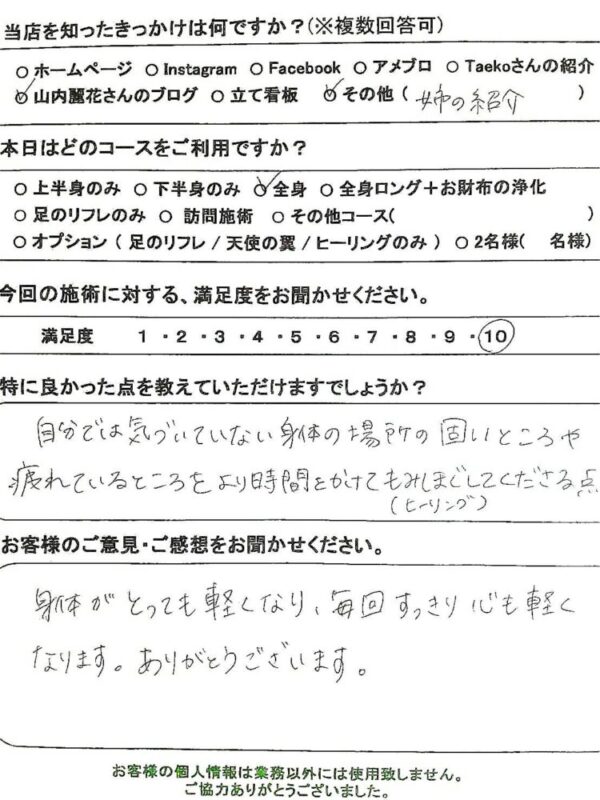 当店を知ったきっかけは何ですか？(※複数回答可)
○ホームページ ○Instagram ○Facebook ○アメブロ ○Taekoさんの紹介
○山内麗花さんのブログ ○立て看板 ○その他（ 姉の紹介 ）
本日はどのコースをご利用ですか？
○上半身のみ ○下半身のみ ○全身 ○全身ロング＋お財布の浄化
○足のリフレのみ ○ 訪問施術 ○その他コース( )
○オプション（ 足のリフレ / 天使の翼 / ヒーリングのみ ） ○2名様( 名様)
今回の施術に対する、満足度をお聞かせください。
満足度 1 ・ 2 ・ 3 ・ 4 ・ 5 ・ 6 ・ 7 ・ 8 ・ 9 ・ 10
特に良かった点を教えていただけますでしょうか？
自分では気づいていない身体の場所の固いところや
疲れているところをより時間をかけてもみほぐしてくださる点
(ヒーリング)
お客様のご意見・ご感想をお聞かせください。
身体がとっても軽くなり、毎回すっきり心も軽く
なります。ありがとうございます。
お客様の個人情報は業務以外には使用致しません。
ご協力ありがとうございました。